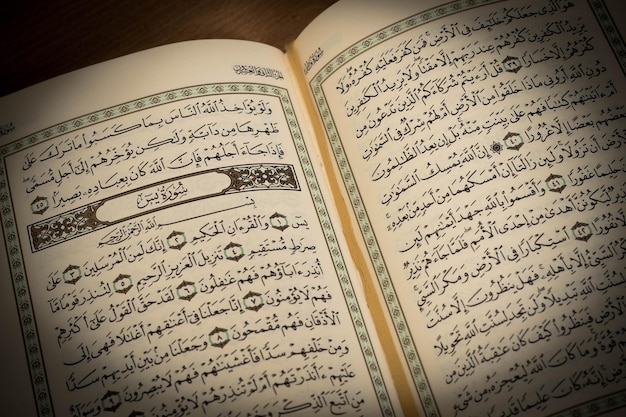 هُوَ الَّذِي جَعَلَكُمْ خَلَائِفَ فِي الْأَرْضِ فَمَن كَفَرَ فَعَلَيْهِ كُفْرُهُ وَلَا
يَزِيدُ الْكَافِرِينَ كُفْرُهُمْ عِندَ رَبِّهِمْ إِلَّا مَقْتًا وَلَا يَزِيدُ الْكَافِرِينَ
كُفْرُهُمْ إِلَّا خَسَارًا ٣٩ قُلْ أَرَأَيْتُمْ شُرَكَاءَكُمُ الَّذِينَ تَدْعُونَ مِن
دُونِ اللَّهِ أَرُونِي مَاذَا خَلَقُوا مِنَ الْأَرْضِ أَمْ لَهُمْ شِرْكٌ فِي السَّمَاوَاتِ
أَمْ آتَيْنَاهُمْ كِتَابًا فَهُمْ عَلَىٰ بَيِّنَتٍ مِّنْهُ بَلْ إِن يَعِدُ الظَّالِمُونَ
بَعْضُهُم بَعْضًا إِلَّا غُرُورًا ٤٠ ۞ إِنَّ اللَّهَ يُمْسِكُ السَّمَاوَاتِ
وَالْأَرْضَ أَن تَزُولَا وَلَئِن زَالَتَا إِنْ أَمْسَكَهُمَا مِنْ أَحَدٍ مِّن بَعْدِهِ
حَلِيمًا غَفُورًا ٤١ وَأَقْسَمُوا بِاللَّهِ جَهْدَ أَيْمَانِهِمْ لَئِن
لَّيَكُونُنَّ أَهْدَىٰ مِنْ إِحْدَى الْأُمَمِ فَلَمَّا جَاءَهُمْ نَذِيرٌ
نُفُورًا ٤٢ اسْتِكْبَارًا فِي الْأَرْضِ وَمَكْرَ السَّيِّئِ
السَّيِّئُ إِلَّا بِأَهْلِهِ فَهَلْ يَنظُرُونَ إِلَّا سُنَّتَ
تَجِدَ لِسُنَّتِ اللَّهِ تَبْدِيلًا وَلَن تَجِدَ لِسُنَّتِ اللَّهِ تَحْوِيلًا
فَيَنظُرُوا كَيْفَ كَانَ عَاقِبَةُ الَّذِينَ
قُوَّةً وَمَا كَانَ اللَّهُ لِيُعْجِزَهُ مِن شَيْءٍ
الجزء الثاني والعشرون
وَلَوْ يُؤَاخِذُ اللَّهُ النَّاسَ بِمَا كَسَبُوا مَا تَرَكَ عَلَىٰ
ظَهْرِهَا مِن دَابَّةٍ وَلَٰكِن يُؤَخِّرُهُمْ إِلَىٰ أَجَلٍ مُّسَمًّى
فَإِذَا جَاءَ أَجَلُهُمْ فَإِنَّ اللَّهَ كَانَ بِعِبَادِهِ بَصِيرًا ٤٥
سُورَةُ يسٓ
بِسْمِ اللَّهِ الرَّحْمَٰنِ الرَّحِيمِ
يسٓ ١ وَالْقُرْآنِ الْحَكِيمِ ٢ إِنَّكَ لَمِنَ الْمُرْسَلِينَ ٣ عَلَىٰ
صِرَاطٍ مُّسْتَقِيمٍ ٤ تَنزِيلَ الْعَزِيزِ الرَّحِيمِ ٥ لِتُنذِرَ قَوْمًا مَّا
أُنذِرَ آبَاؤُهُمْ فَهُمْ غَافِلُونَ ٦ لَقَدْ حَقَّ الْقَوْلُ عَلَىٰ أَكْثَرِهِمْ
فَهُمْ لَا يُؤْمِنُونَ ٧ إِنَّا جَعَلْنَا فِي أَعْنَاقِهِمْ أَغْلَالًا فَهِيَ إِلَى
الْأَذْقَانِ فَهُم مُّقْمَحُونَ ٨ وَجَعَلْنَا مِن بَيْنِ أَيْدِيهِمْ سَدًّا
وَمِنْ خَلْفِهِمْ سَدًّا فَأَغْشَيْنَاهُمْ فَهُمْ لَا يُبْصِرُونَ ٩ وَسَوَاءٌ
عَلَيْهِمْ أَأَنذَرْتَهُمْ أَمْ لَمْ تُنذِرْهُمْ لَا يُؤْمِنُونَ ١٠ إِنَّمَا تُنذِرُ
مَنِ اتَّبَعَ الذِّكْرَ